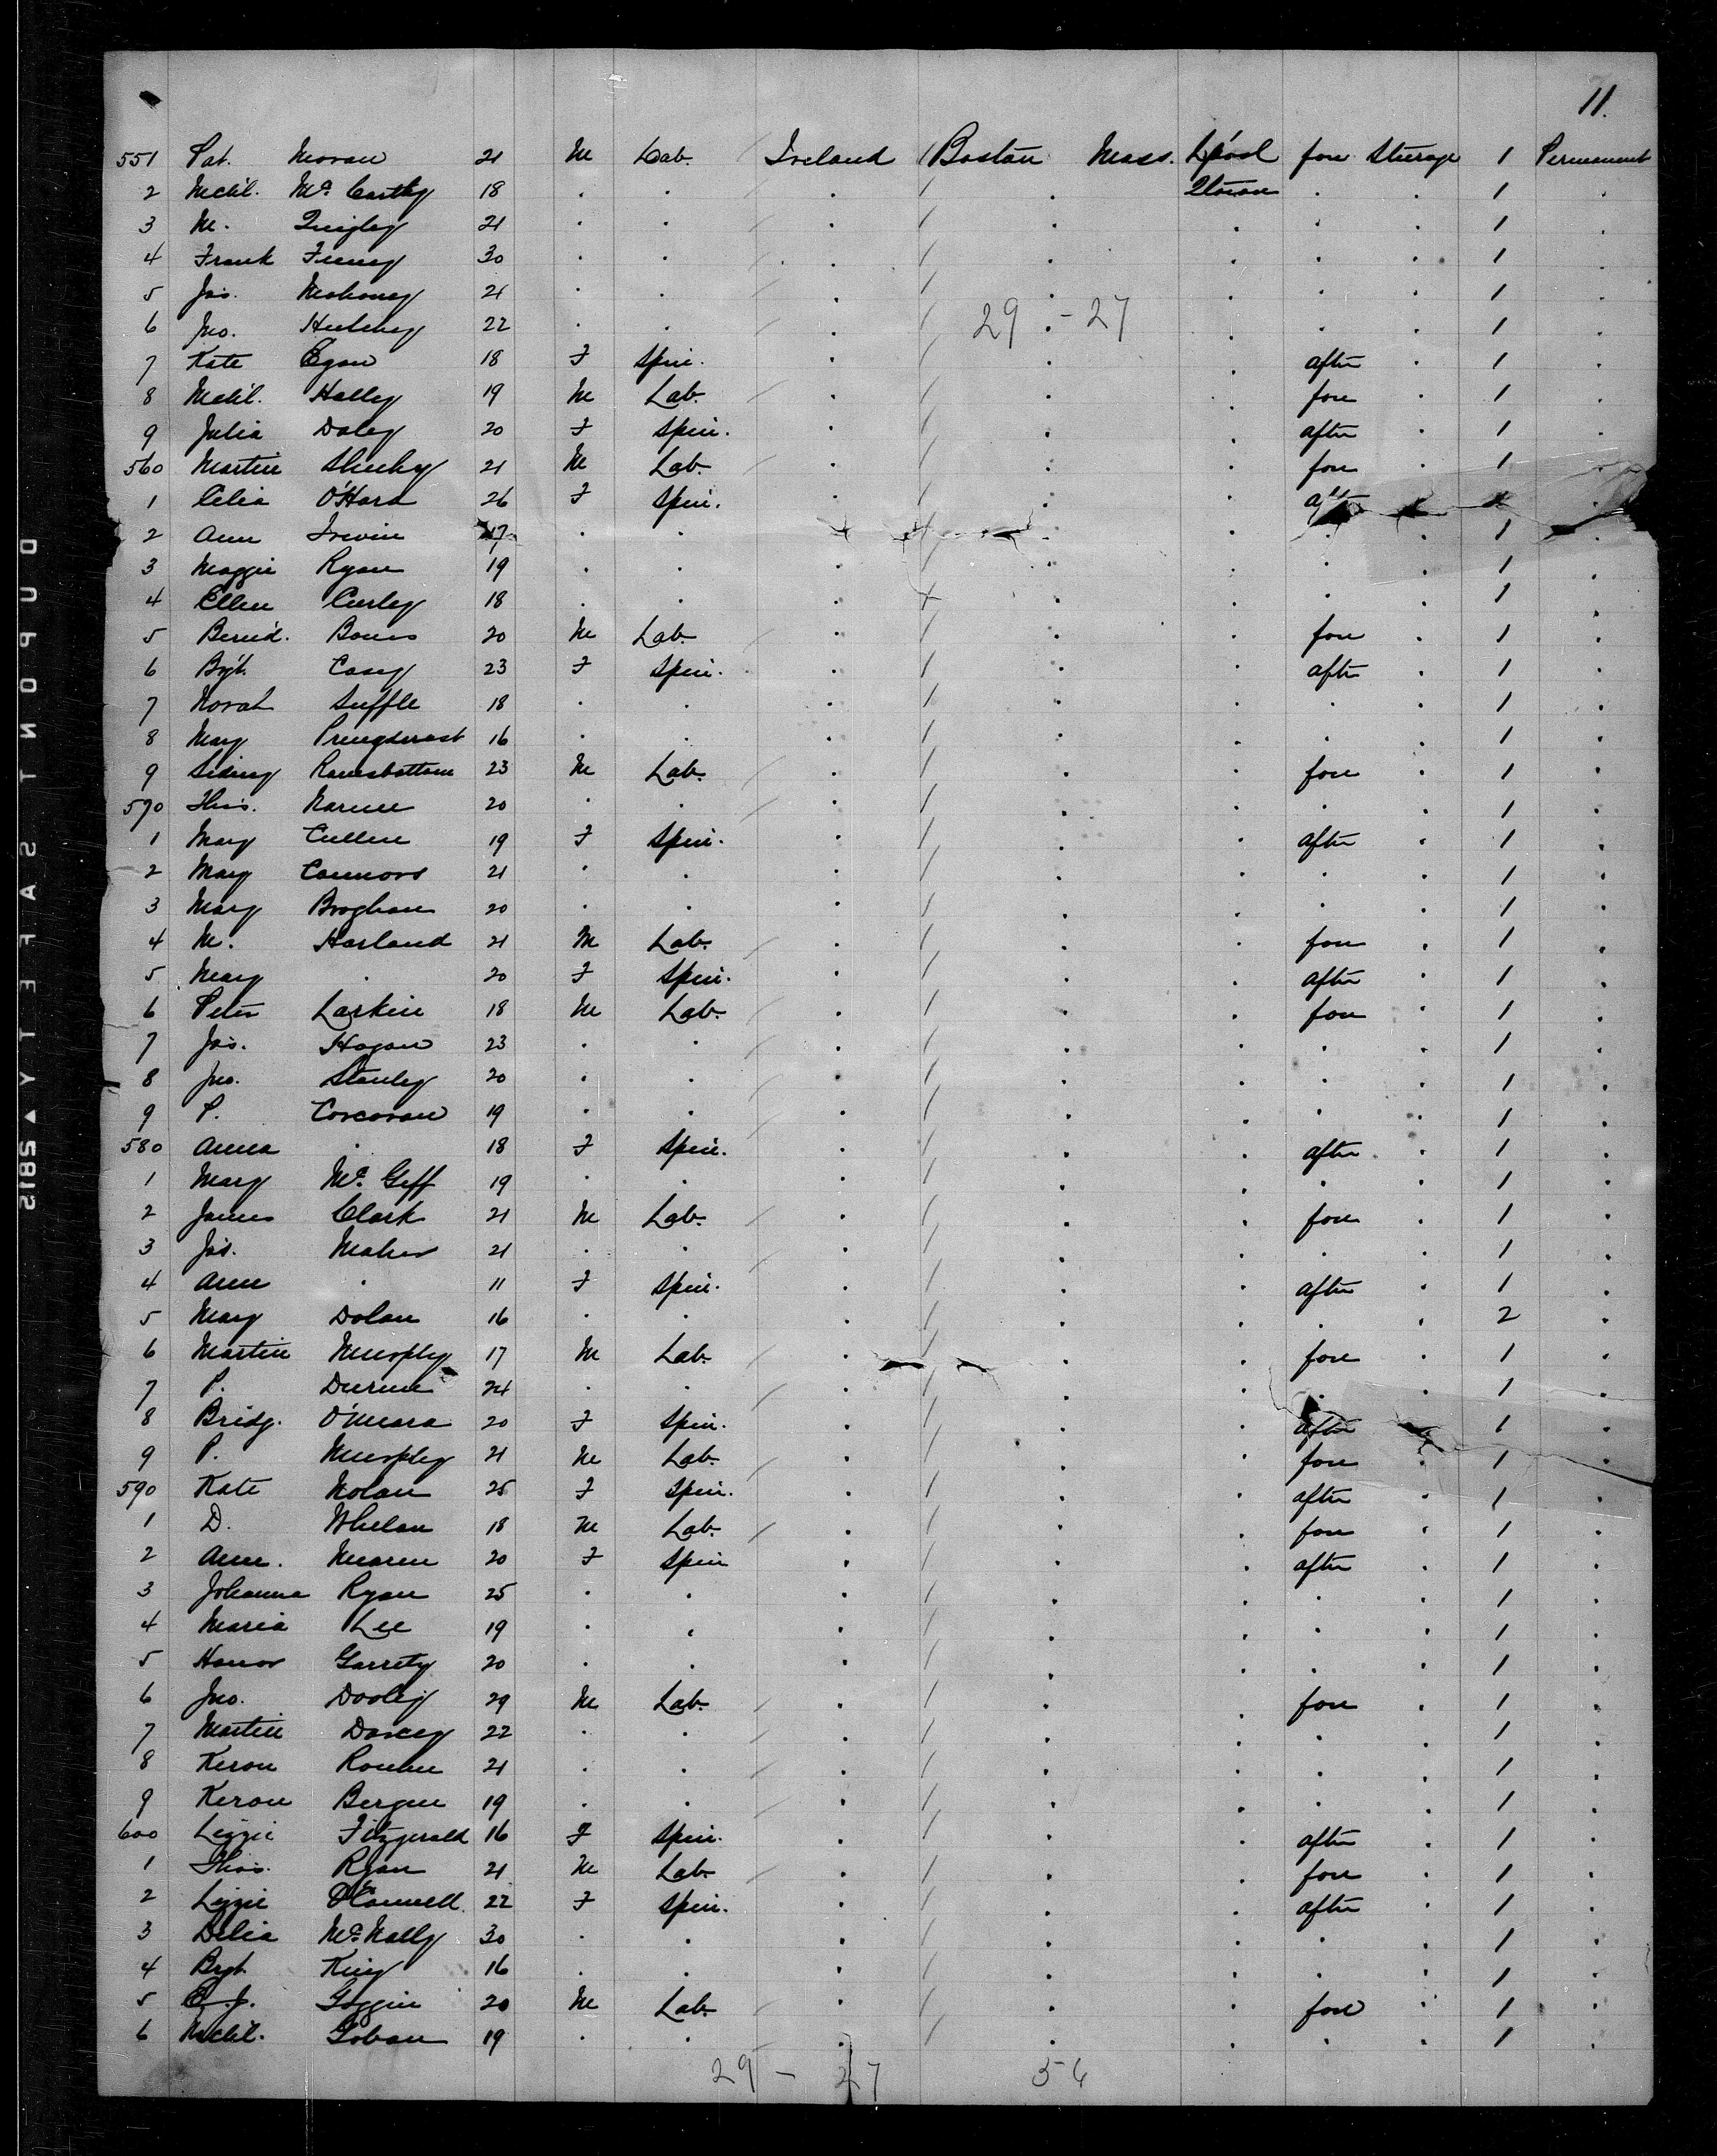 11.
551 Pat. Moran 21 M Lab. Ireland Boston Mass. L'pool fore Steerage 1 Permanent
2 Mchl. McCarthy 18 . . . . . . 1 .
3 M. Quigley 21 . . . . . . . 1 .
4 Frank Feeney 30 . . . . . . . 1 .
5 Jas. Mahoney 21 . . . . . . . 1 .
29 - 27
6 Jno. 22 . . . . . . . 1 .
7 Kate Egan 18 F Spin. . . . after . 1 .
8 Mchl. Halley 19 M Lab. . . . fore . 1 .
9 Julia Daley 20 F Spin. . . . after . 1 .
560 Martin Sheehy 21 M Lab. . . . fore . 1 .
1 Celia O'Hara 26 F Spin. . . . .
2 Ann Irwin 17 . . . . . . . 1 .
3 Maggie Ryan 19 . . . . . . . 1 .
4 Ellen Curley 18 . . . . . . . 1 .
5 Bernd. 20 M Lab. . . . fore . 1 .
6 Bgt. Casey 23 F Spin. . . . after . 1 .
7 Norah 18 . . . . . . . 1 .
8 Mary 16 . . . . . . . 1 .
9 Ramsbottom 23 M Lab. . . . fore . 1 .
570 Thos. 20 . . . . . . . 1 .
1 Mary Cullen 19 F Spin. . . . after . 1 .
2 Mary Connors 21 . . . . . . . 1 .
3 Mary Broghan 20 . . . . . . . 1 .
4 M. Harland 21 M Lab. . . . fore . 1 .
5 Mary . 20 F Spin. . . . after . 1 .
6 Peter Larkin 18 M Lab. . . . fore . 1 .
7 Jas. Hogan 23 . . . . . . . 1 .
8 Jno. Stanley 20 . . . . . . . 1 .
9 P. Corcoran 19 . . . . . . . 1 .
580 Anna . 18 F Spin. . . . after . 1 .
1 Mary McGeff 19 . . . . . . . 1 .
2 James Clark 21 M Lab. . . . fore . 1 .
3 Jas. Maher 21 . . . . . . . 1 .
4 Ann . 11 F Spin. . . . after . 1 .
5 Mary Dolan 16 . . . . . . . 2 .
6 Martin Murphy 17 M Lab. . . . fore . 1 .
7 P. 24 . . . . . . . 1 .
8 Bridg. O'Meara 20 F Spin. . . . after . 1 .
9 P. Murphy 21 M Lab. . . . fore . 1 .
590 Kate Nolan 25 F Spin. . . . after . 1 .
1 D. Whelan 18 M Lab. . . . fore . 1 .
2 Ann. 20 F Spin . . . after . 1 .
3 Johanna Ryan 25 . . . . . . . 1 .
4 Maria Lee 19 . . . . . . . 1 .
5 Honor Garrety 20 . . . . . . . 1 .
6 Jno. Dooley 29 M Lab. . . . fore . 1 .
7 Martin Darcey 22 . . . . . . . 1 .
8 Keron 21 . . . . . . . 1 .
9 Keron Bergin 19 . . . . . . . 1 .
600 Lizzie Fitzgerald 16 F Spin. . . . after . 1 .
1 Thos. Ryan 21 M Lab. . . . fore . 1 .
2 Lizzie O'Connell 22 F Spin. . . . after . 1 .
3 Delia McNally 30 . . . . . . . 1 .
4 Bgt. King 16 . . . . . . . 1 .
5 J. Goggin 20 M Lab. . . . fore . 1 .
6 Mchl. 19 . . . . . . . 1 .
29 - 27 56
DUPONT SAFETY ▲ 5185